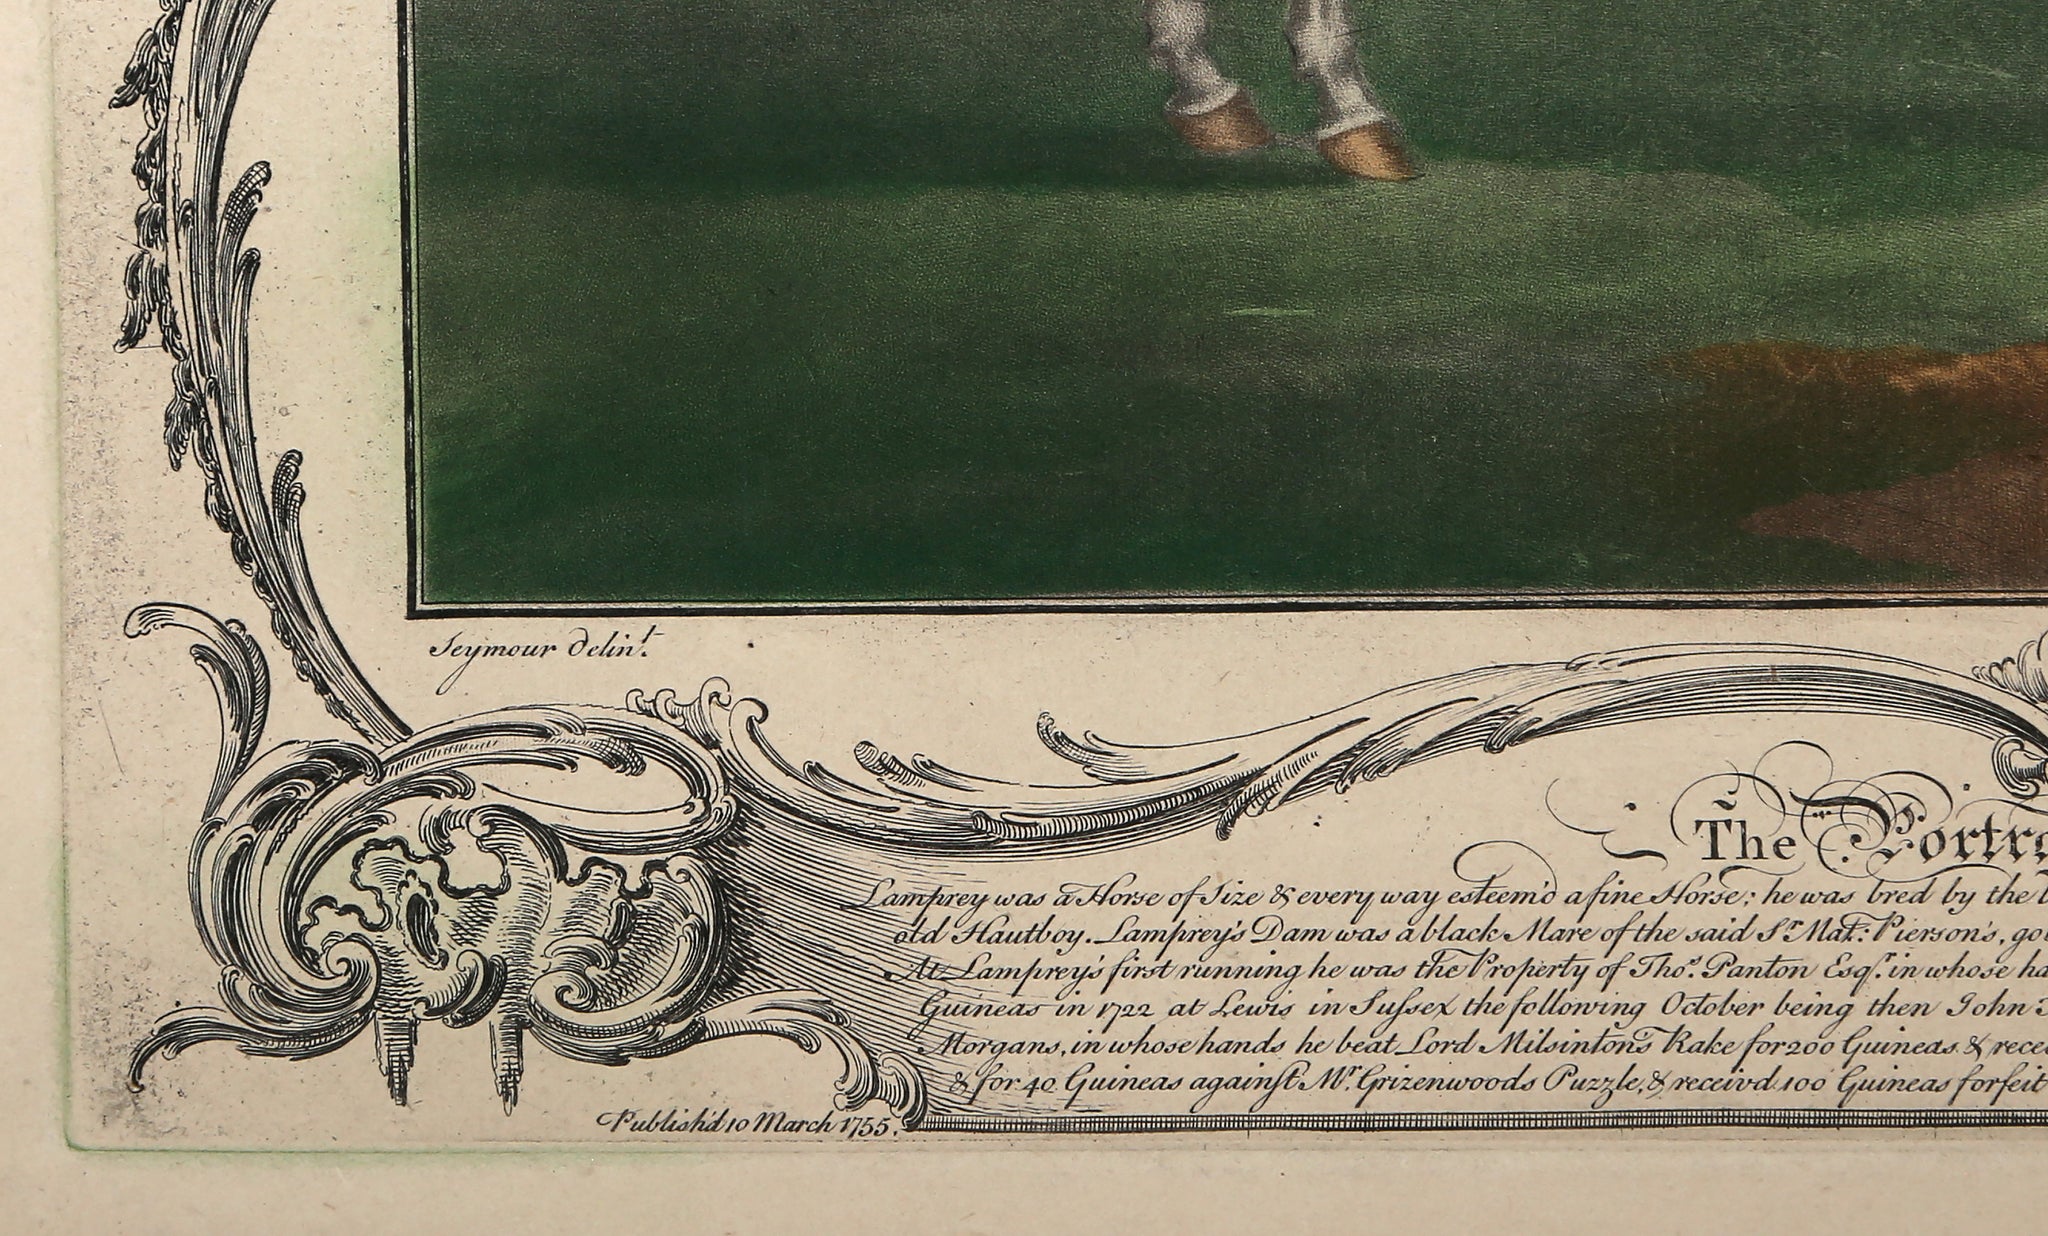 Seymour delin.t
The Portra
Lamprey was a Horse of Size & every way esteem'd a fine Horse; he was bred by the
old Hautboy. Lamprey's Dam was a black Mare of the said Sr. Mat: Pierson's, go
At Lamprey's first running he was the Property of Thos. Panton Esqr. in whose ha
Guineas in 1722 at Lewis in Sussex the following October being then John
Morgans, in whose hands he beat Lord Milsintons Rake for 200 Guineas & recei
& for 40 Guineas against Mr. Grizenwoods Puzzle, & receivd 100 Guineas forfeit
Publish'd 10 March 1755.